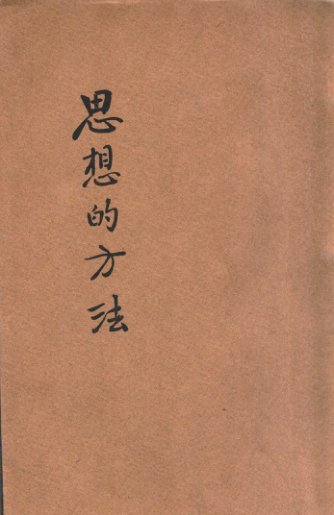 思想的方法